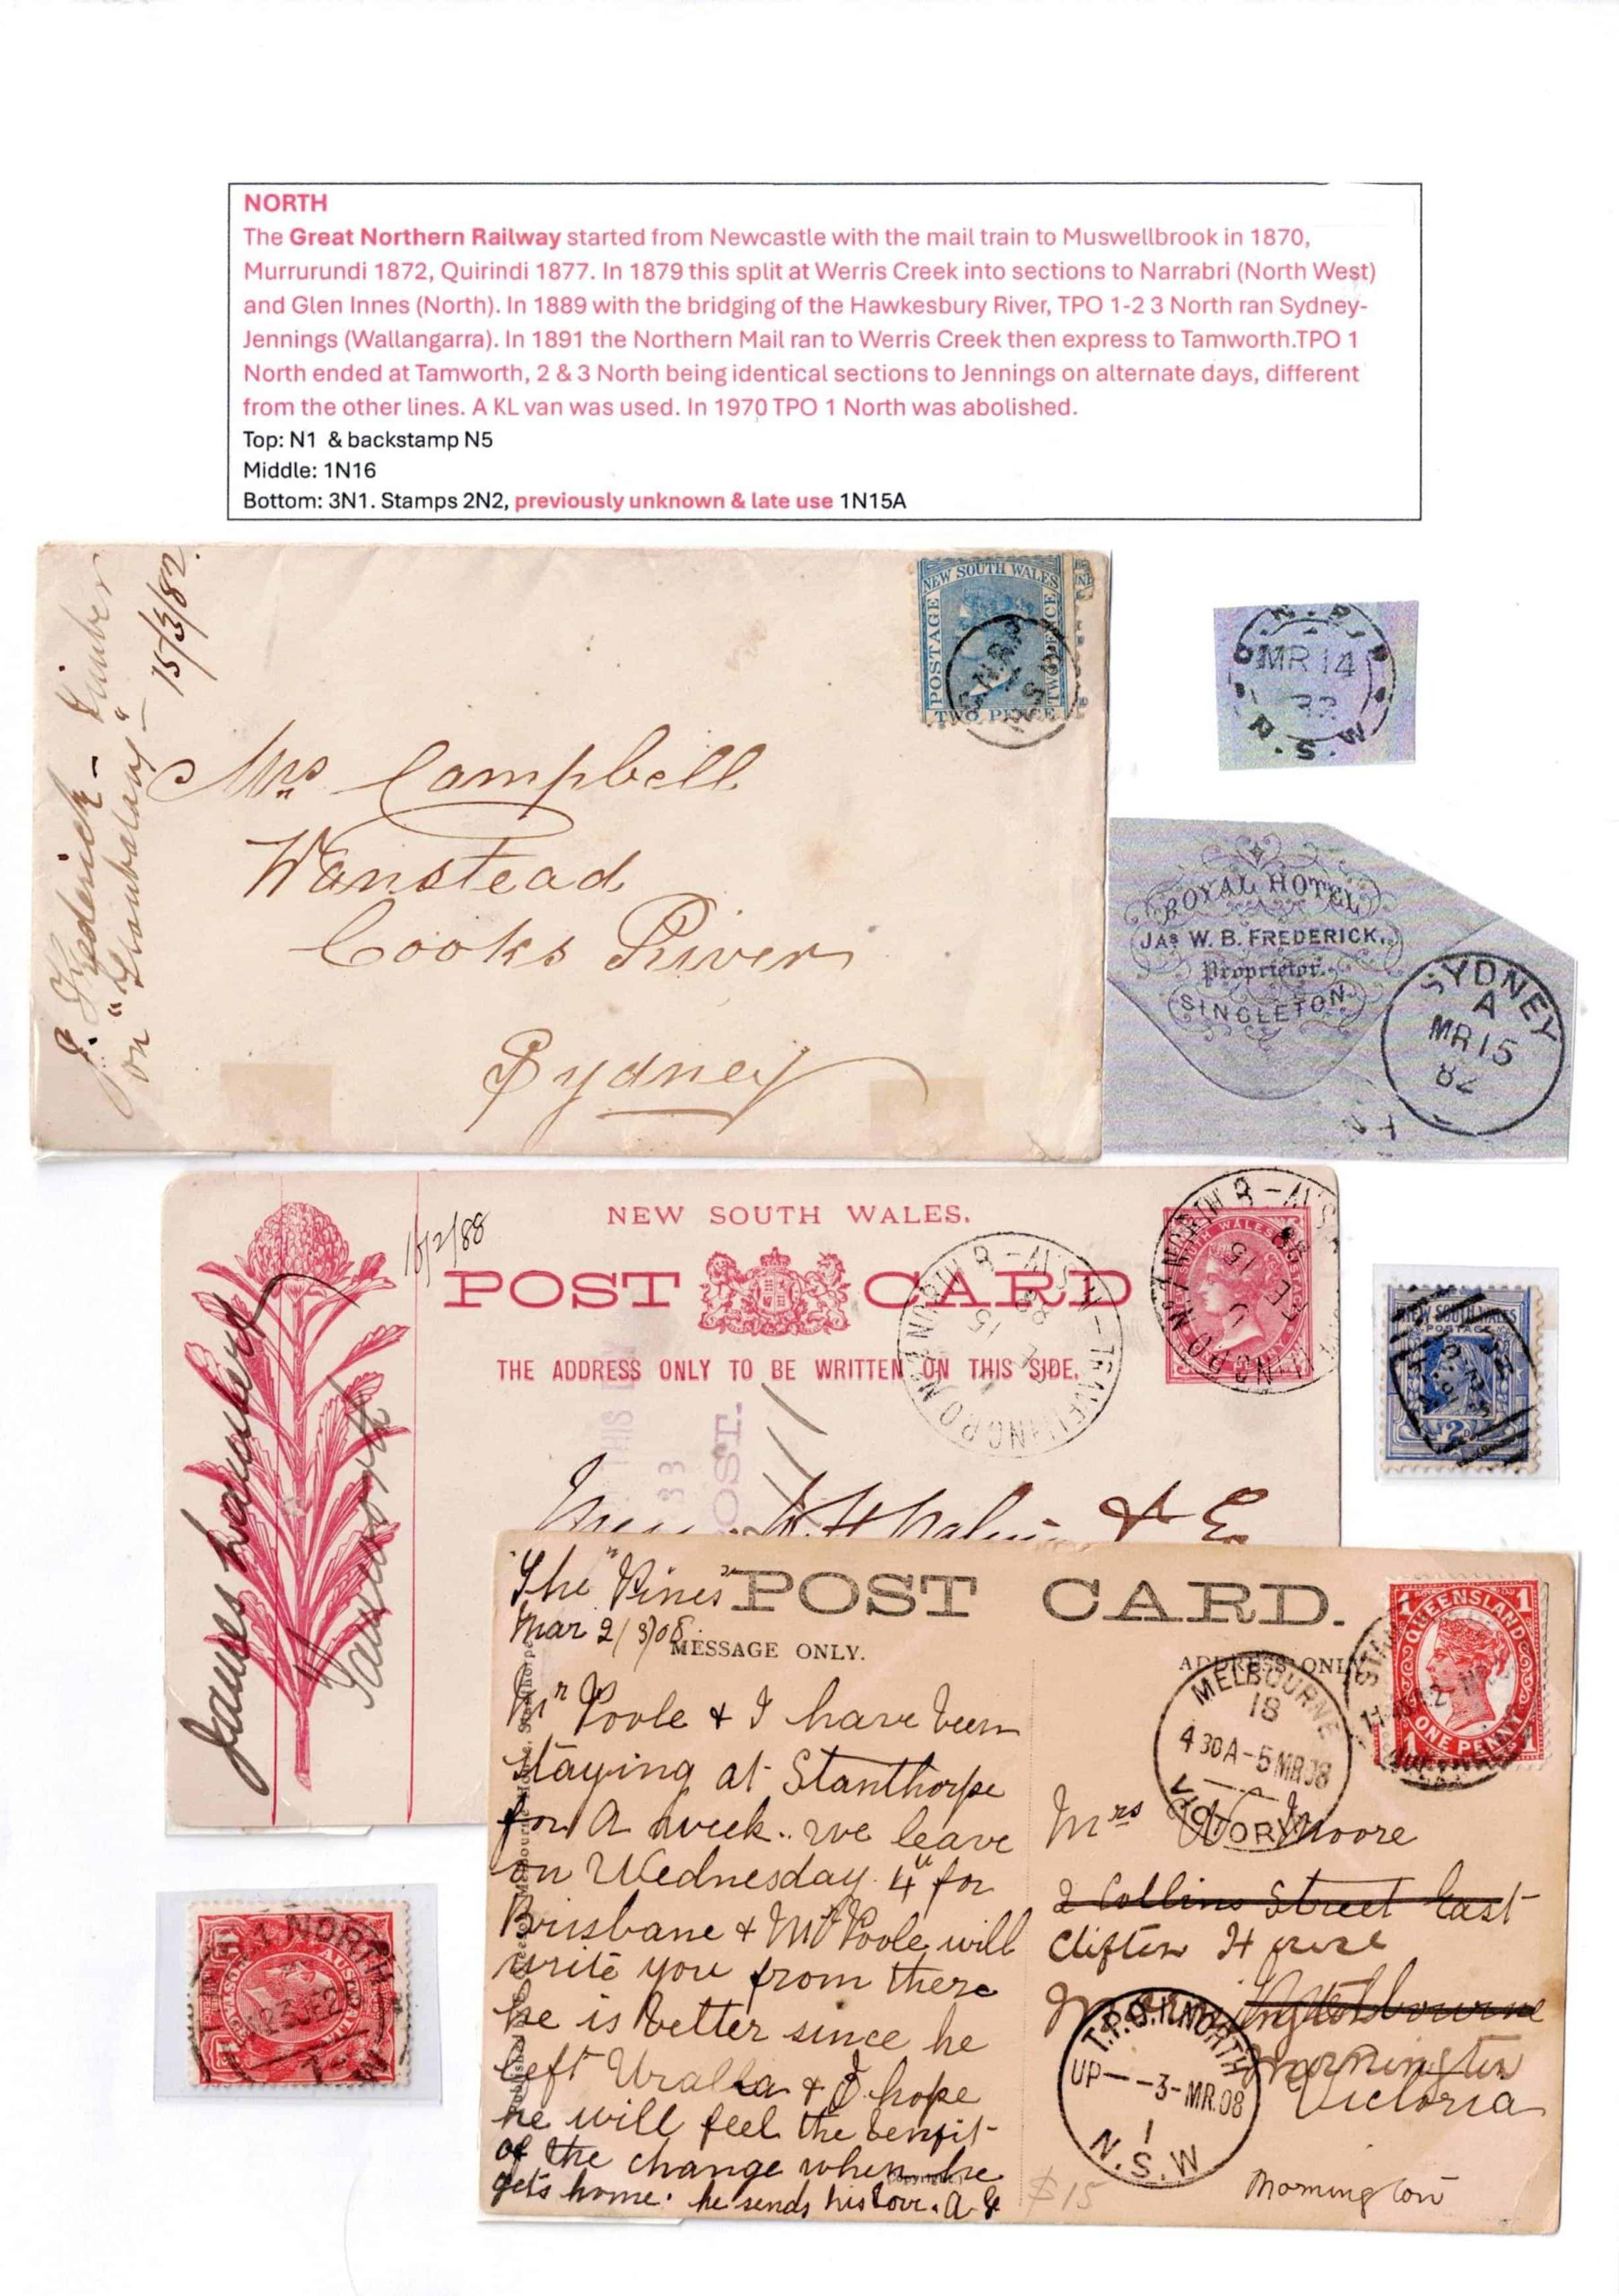 NORTH
The Great Northern Railway started from Newcastle with the mail train to Muswellbrook in 1870,
Murrurundi 1872, Quirindi 1877. In 1879 this split at Werris Creek into sections to Narrabri (North West)
and Glen Innes (North). In 1889 with the bridging of the Hawkesbury River, TPO 1-2 3 North ran Sydney-
Jennings (Wallangarra). In 1891 the Northern Mail ran to Werris Creek then express to Tamworth.TPO 1
North ended at Tamworth, 2 & 3 North being identical sections to Jennings on alternate days, different
from the other lines. A KL van was used. In 1970 TPO 1 North was abolished.
Top: N1 & backstamp N5
Middle: 1N16
Bottom: 3N1. Stamps 2N2, previously unknown & late use 1N15A
J. Frederick -
on
15/3/82
NEW SOUTH WALES
POSTAGE
TWO PENCE
TWO PENCE
Mrs Campbell
Wanstead
Cooks River
Sydney
MR 14
82
N.S.W
ROYAL HOTEL
JAS W. B. FREDERICK,
Proprietor.
SINGLETON
SYDNEY
A
MR 15
82
NEW SOUTH WALES.
POST CARD
THE ADDRESS ONLY TO BE WRITTEN ON THIS SIDE.
15/2/88
James
TRAVELLING P.O. No 1 NORTH
15
88
NEW SOUTH WALES
POSTAGE
2D
"The "Pines"
Mar 2/3/08.
POST CARD.
MESSAGE ONLY.
ADDRESS ONLY
Mr Poole & I have been
staying at Stanthorpe
for a week.. we leave
on Wednesday 4" for
Brisbane & Mr Poole will
write you from there
he is better since he
left Uralla & I hope
he will feel the benefit
of the change when he
gets home. he sends his love. A
QUEENSLAND
ONE PENNY
MELBOURNE
18
4 30A-5 MR 08
VICTORIA
Mrs Moore
2 Collins Street East
Clifton
Melbourne
Mornington
Victoria
T.P.O. NORTH
UP - -3-MR.08
1
N.S.W
Mornington
$15
Copyright
T.P.O.1 NORTH
23 JE 2
N.S.W